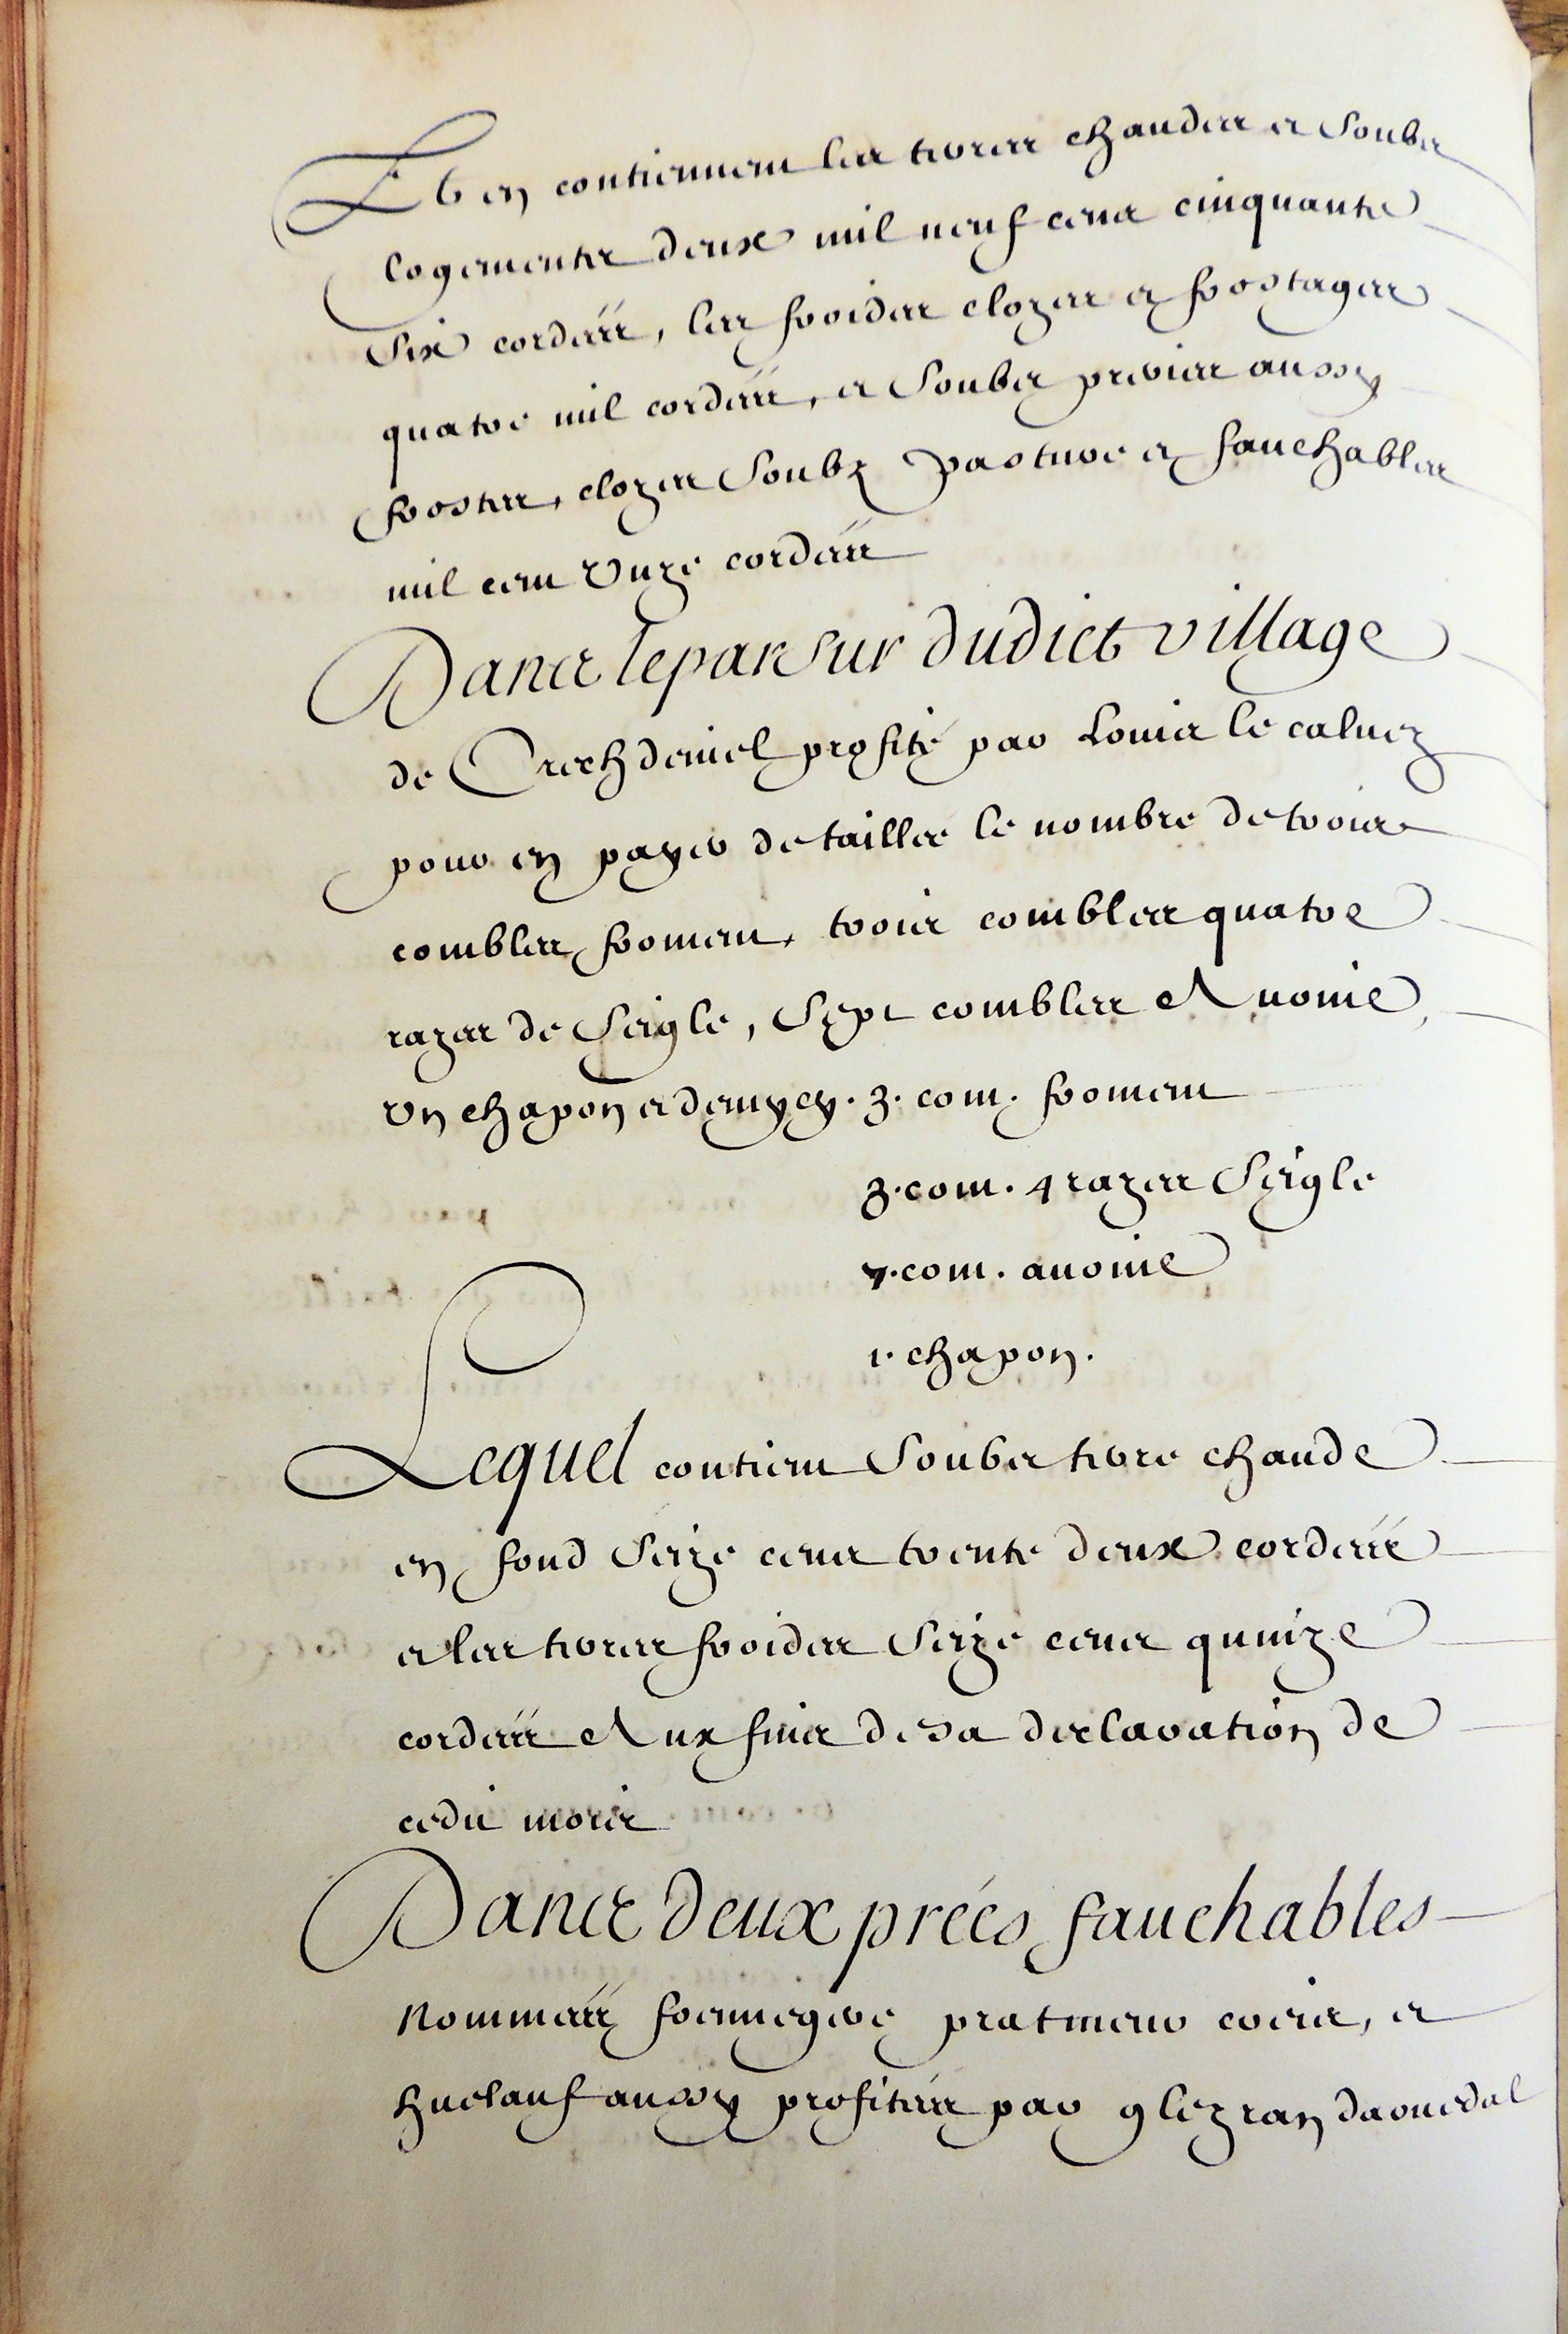 Et en contiennent les terres chaudes et soubz
logementz deux mil neuf centz cinquante
six cordées, les froides clozes et frostages
quatre mil cordées, et soubz preries aussy
frostes, clozes soubz pasture et fauchables
mil cent unze cordées
Dans le parsur dudict village
de Crechdeniel profité par Louis le caluez
pour en payer de taillee le nombre de trois
combles froment, trois combles quatre
razes de seigle, sept combles Avoine
un chapon et demy cy. 3. com. froment
3. com. 4 razes seigle
7. com. avoine
1. chapon.
Lequel contient soubz terre chaude
en fond seize centz trente deux cordées
et les terres froides seize centz quinze
cordées Aux fins de sa declaration de
cedit mois
Dans deux préés fauchables
Nommées prat meur et
aussy profitées par